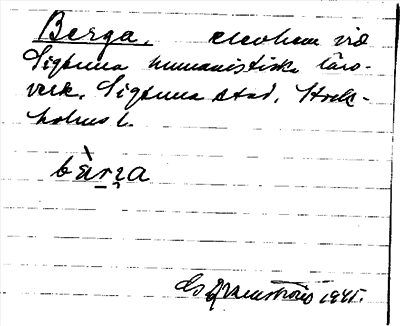 Berga, elevhem vid
Sigtuna humanistiska läro-
verk, Sigtuna stad, Stock-
holms l.
bàrza
1945.